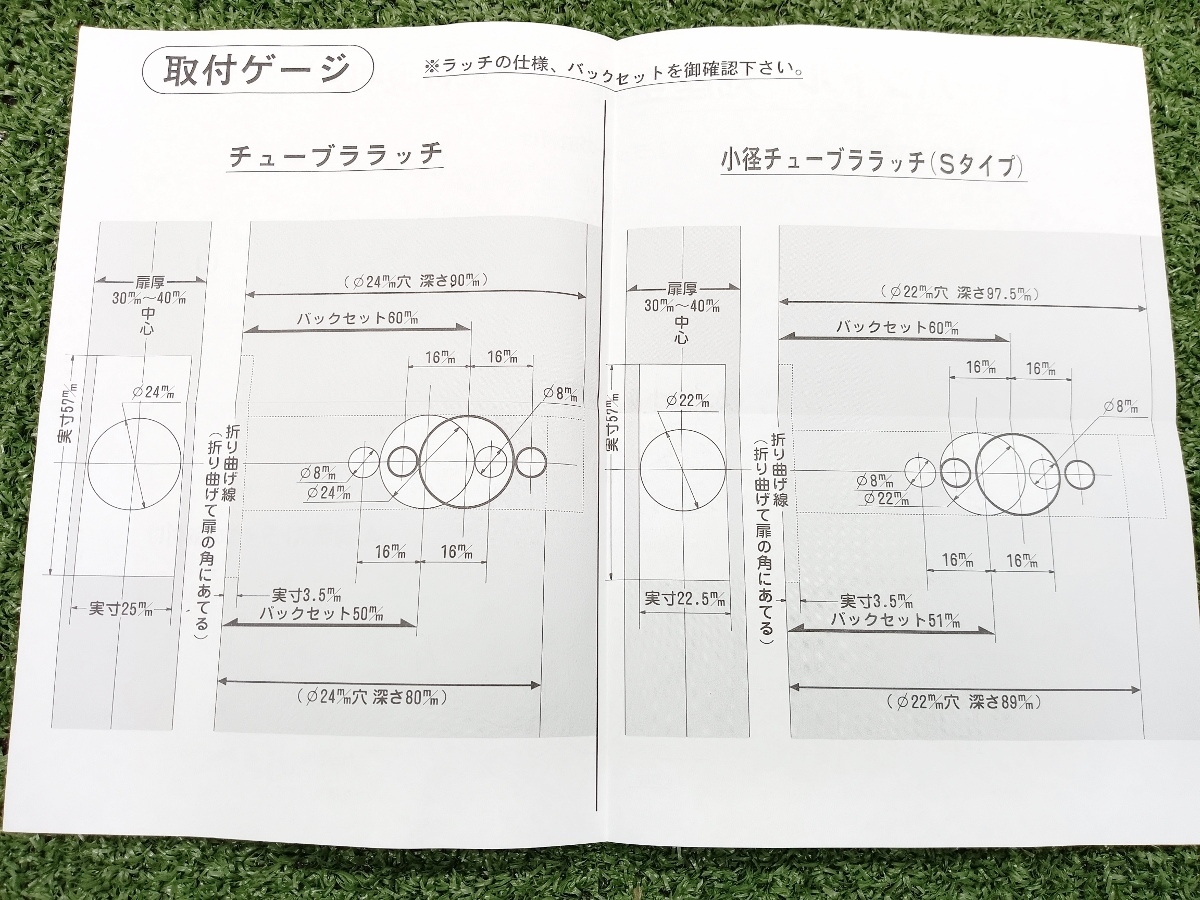 取付ゲージ
※ラッチの仕様、バックセットを御確認下さい。
チューブララッチ
扉厚
30m/m～40m/m
中心
(φ24m/m穴 深さ90m/m)
バックセット60m/m
16m/m
16m/m
φ24m/m
φ8m/m
実寸57m/m
折り曲げ線
(折り曲げて扉の角にあてる)
φ8m/m
φ24m/m
16m/m
16m/m
実寸25m/m
実寸3.5m/m
バックセット50m/m
(φ24m/m穴 深さ80m/m)
小径チューブララッチ(Sタイプ)
扉厚
30m/m～40m/m
中心
(φ22m/m穴 深さ97.5m/m)
バックセット60m/m
16m/m
16m/m
φ22m/m
φ8m/m
実寸57m/m
折り曲げ線
(折り曲げて扉の角にあてる)
φ8m/m
φ22m/m
16m/m
16m/m
実寸22.5m/m
実寸3.5m/m
バックセット51m/m
(φ22m/m穴 深さ89m/m)